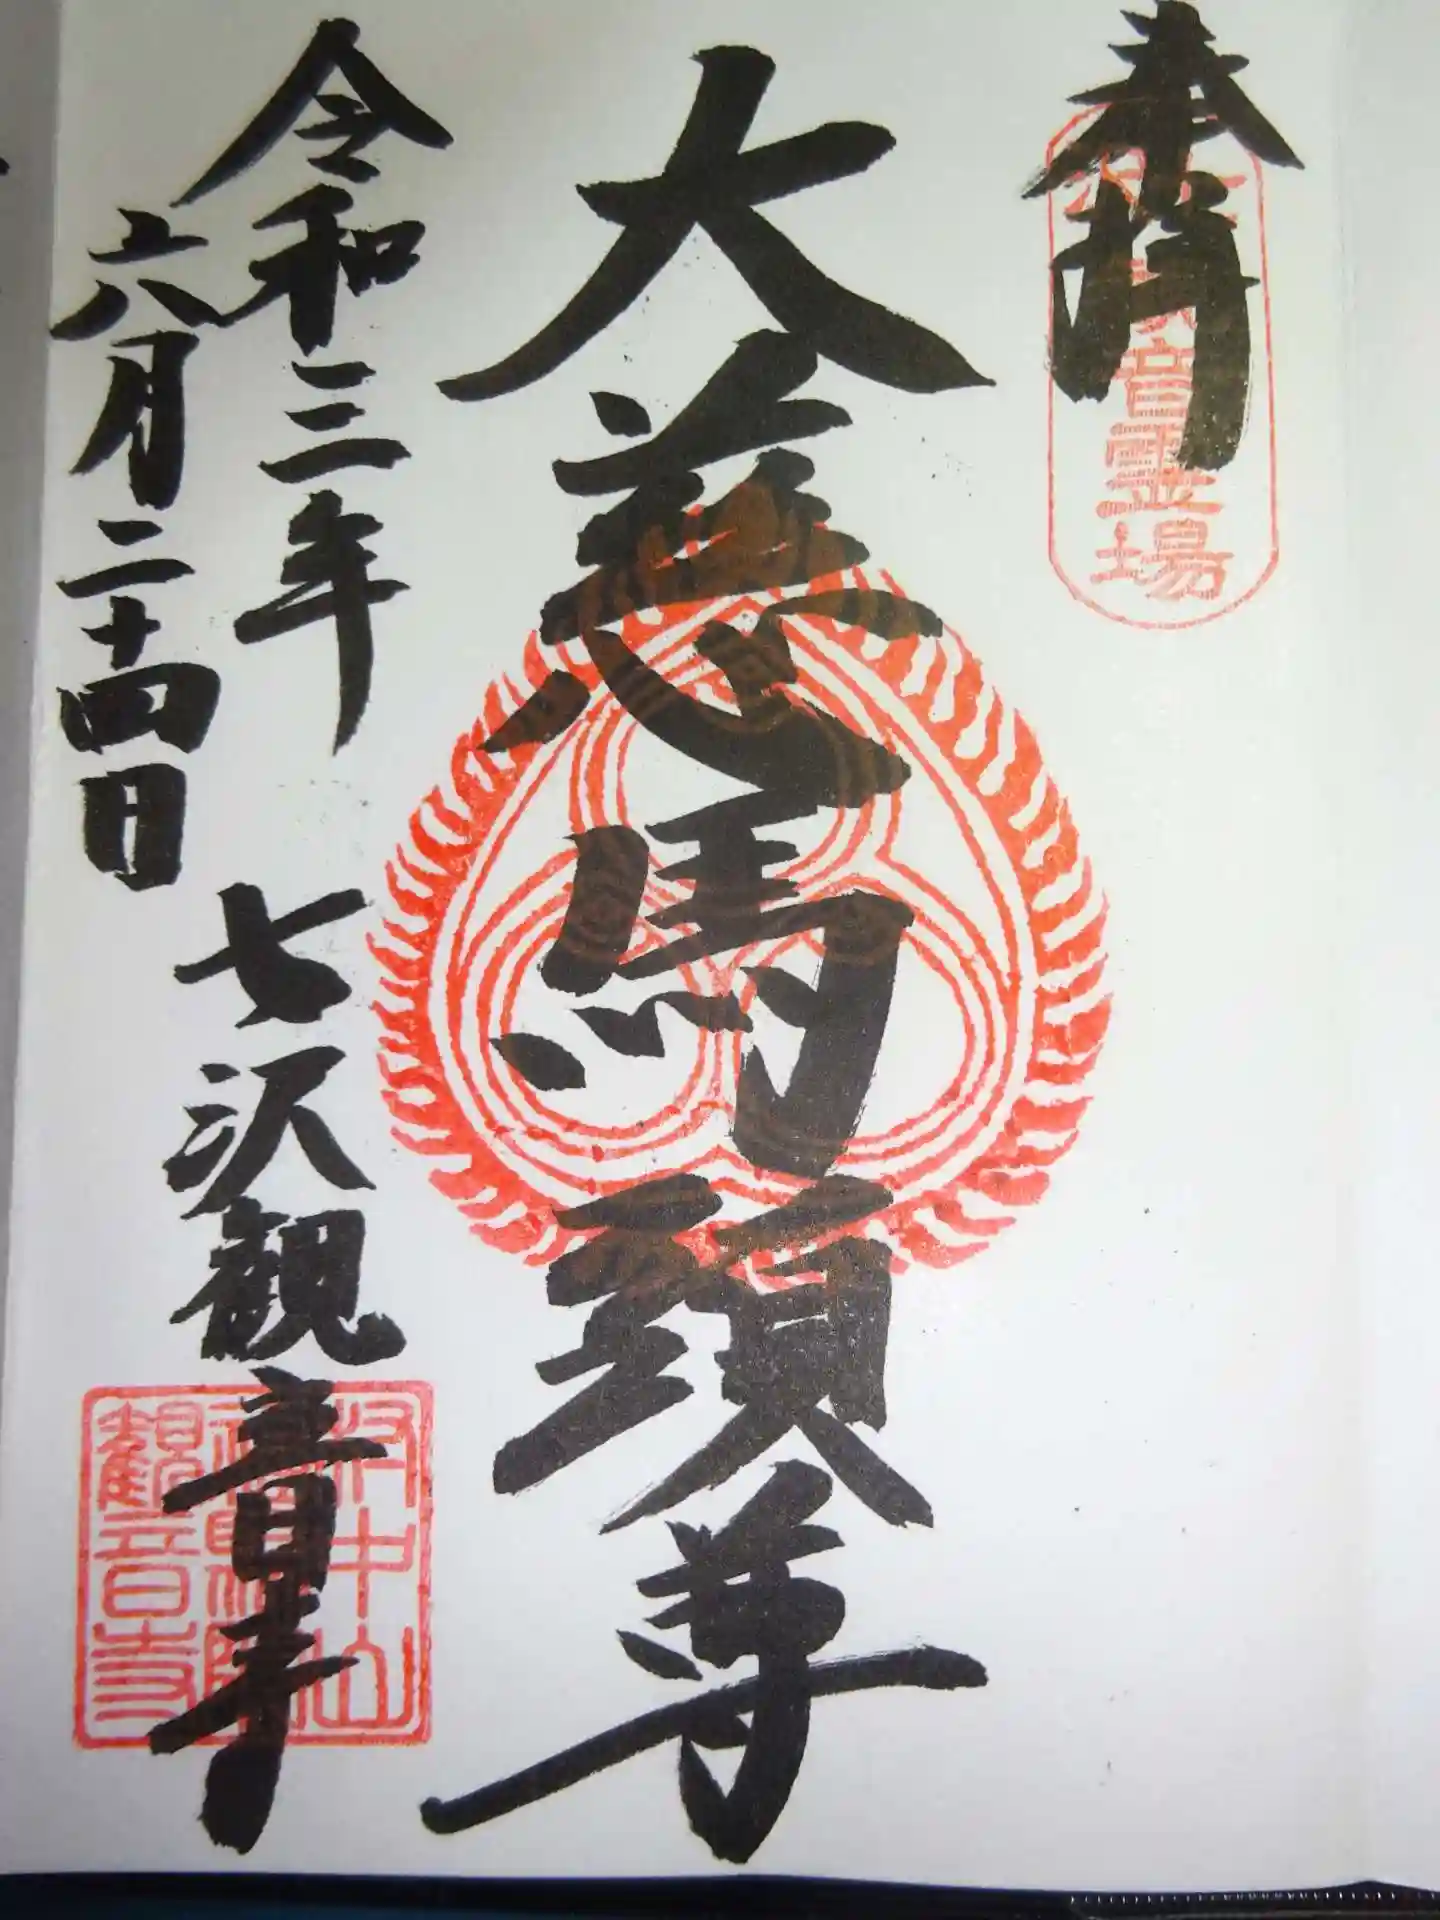 奉拝
音霊場
大慈馬頭尊
令和三年
六月二十四日
七沢観音寺
中山
観音寺